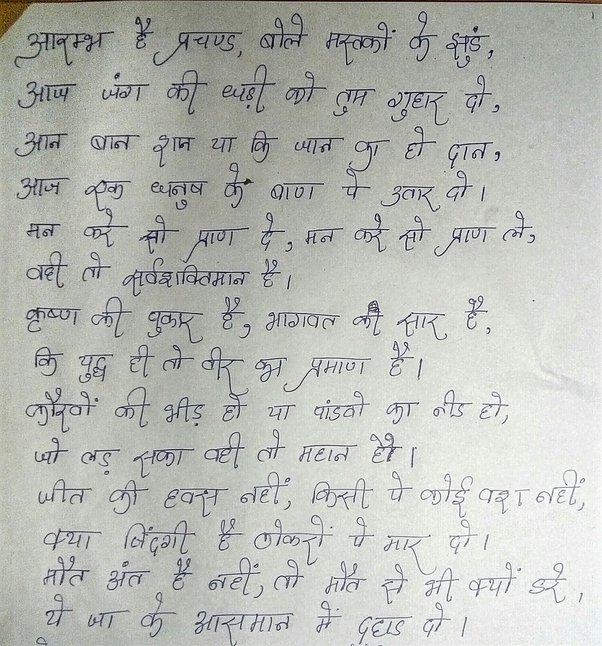 आरम्भ है प्रचण्ड, बोले मस्तकों के झुडं,
आज जंग की घड़ी को तुम गुहार दो,
आन बान शान या कि जान का हो दान,
आज एक धनुष के बाण पे उतार दो।
मन करे सो प्राण दे, मन करे सो प्राण ले,
वही तो सर्वशक्तिमान है।
कृष्ण की पुकार है, भागवत की सार है,
कि युद्ध ही तो वीर का प्रमाण है।
कौरवों की भीड़ हो या पांडवो का नीड हो,
जो लड़ सका वही तो महान है।
जीत की हवस नहीं, किसी पे कोई वश नहीं,
क्या जिंदगी है ठोकरों पे मार दो।
मौत अंत है नहीं, तो मौत से भी क्यों डरे,
ये जा के आसमान में दहाड दो।